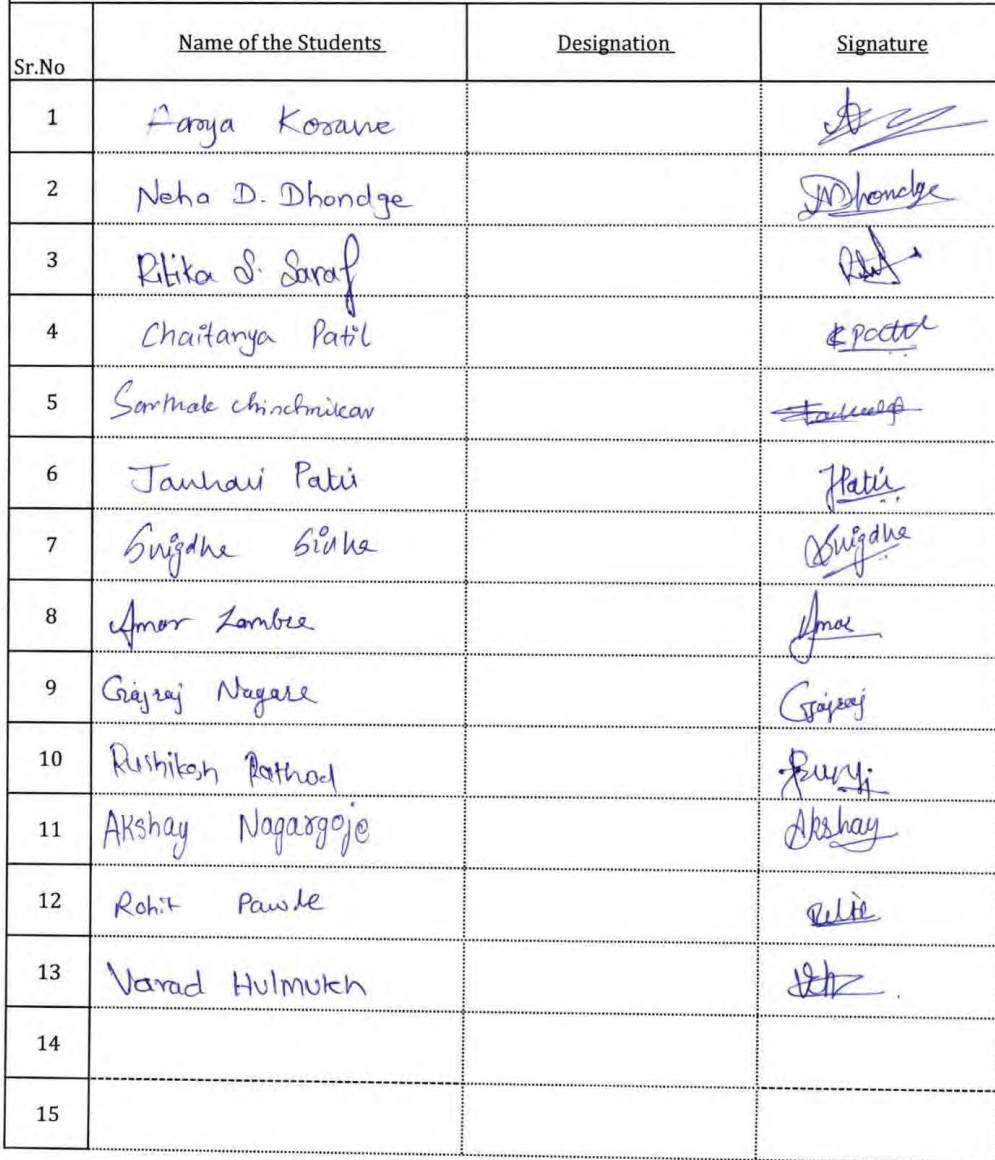 Sr.No Name of the Students Designation Signature
1 Aarya Korane
2 Neha D. Dhondge NDhondge
3 Ritika S. Saraf
4 Chaitanya Patil
5 Sarthak chinchnikar
6 Janhavi Patil JPatil
7 Snigdha Sinha Snigdha
8 Amar Zambre Amar
9 Gajraj Nagare Gajraj
10 Rushikesh Rathod
11 Akshay Nagargoje Akshay
12 Rohit Pawde
13 Varad Hulmukh
14
15